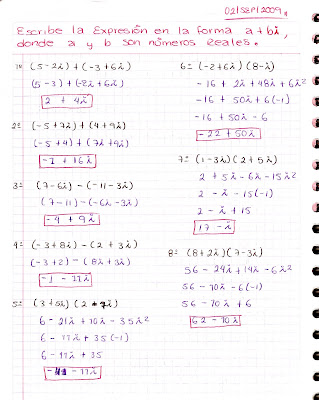 02/SEP/2009
Escribe la Expresión en la forma a+bi,
donde a y b son números Reales.
1= (5-2i) + (-3+6i)
(5-3)+(-2i+6i)
2 + 4i
2= (-5+7i) + (4+9i)
(-5+4) + (7i+9i)
-1 + 16i
3= (7-6i) - (-11-3i)
(7-11) - (-6i-3i)
-4 + 9i
4= (-3+8i) - (2+3i)
(-3+2) - (8i+3i)
-1 - 11i
5= (3+5i) (2-7i)
6 - 21i + 10i - 35i²
6 - 11i + 35(-1)
6 - 11i + 35
- 11i
6= (-2+6i) (8-i)
-16 + 2i + 48i + 6i²
-16 + 50i + 6(-1)
-16 + 50i - 6
-22 + 50i
7= (1-3i) (2+5i)
2 + 5i - 6i - 15i²
2 - i - 15(-1)
2 - i + 15
17 - i
8= (8+2i) (7-3i)
56 - 24i + 14i - 6i²
56 - 10i - 6(-1)
56 - 10i + 6
62 - 10i